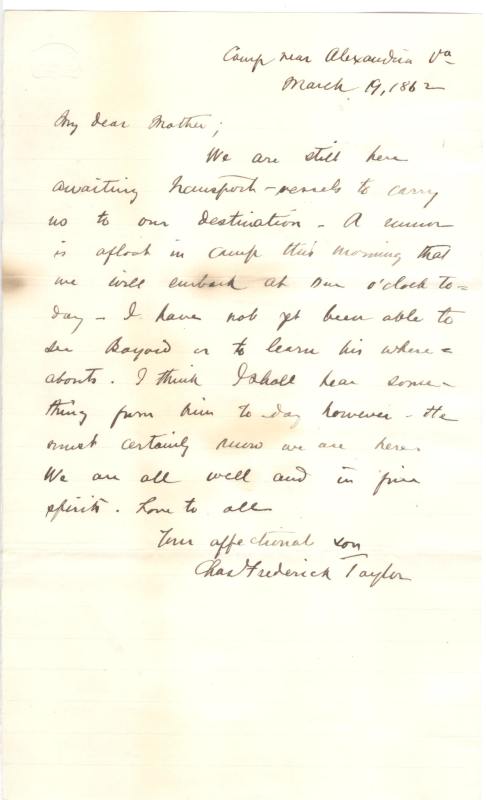 Camp near Alexandria Va
March 19, 1862
My dear Mother;
We are still here
awaiting transport-vessels to carry
us to our destination - A rumor
is afloat in camp this morning that
we will embark at one o'clock to=
day - I have not yet been able to
see Bayard or to learn his where=
abouts. I think I shall hear some-
thing from him to-day however - He
must certainly know we are here
We are all well and in fine
spirits. Love to all
Your affectional son
Chas Frederick Taylor